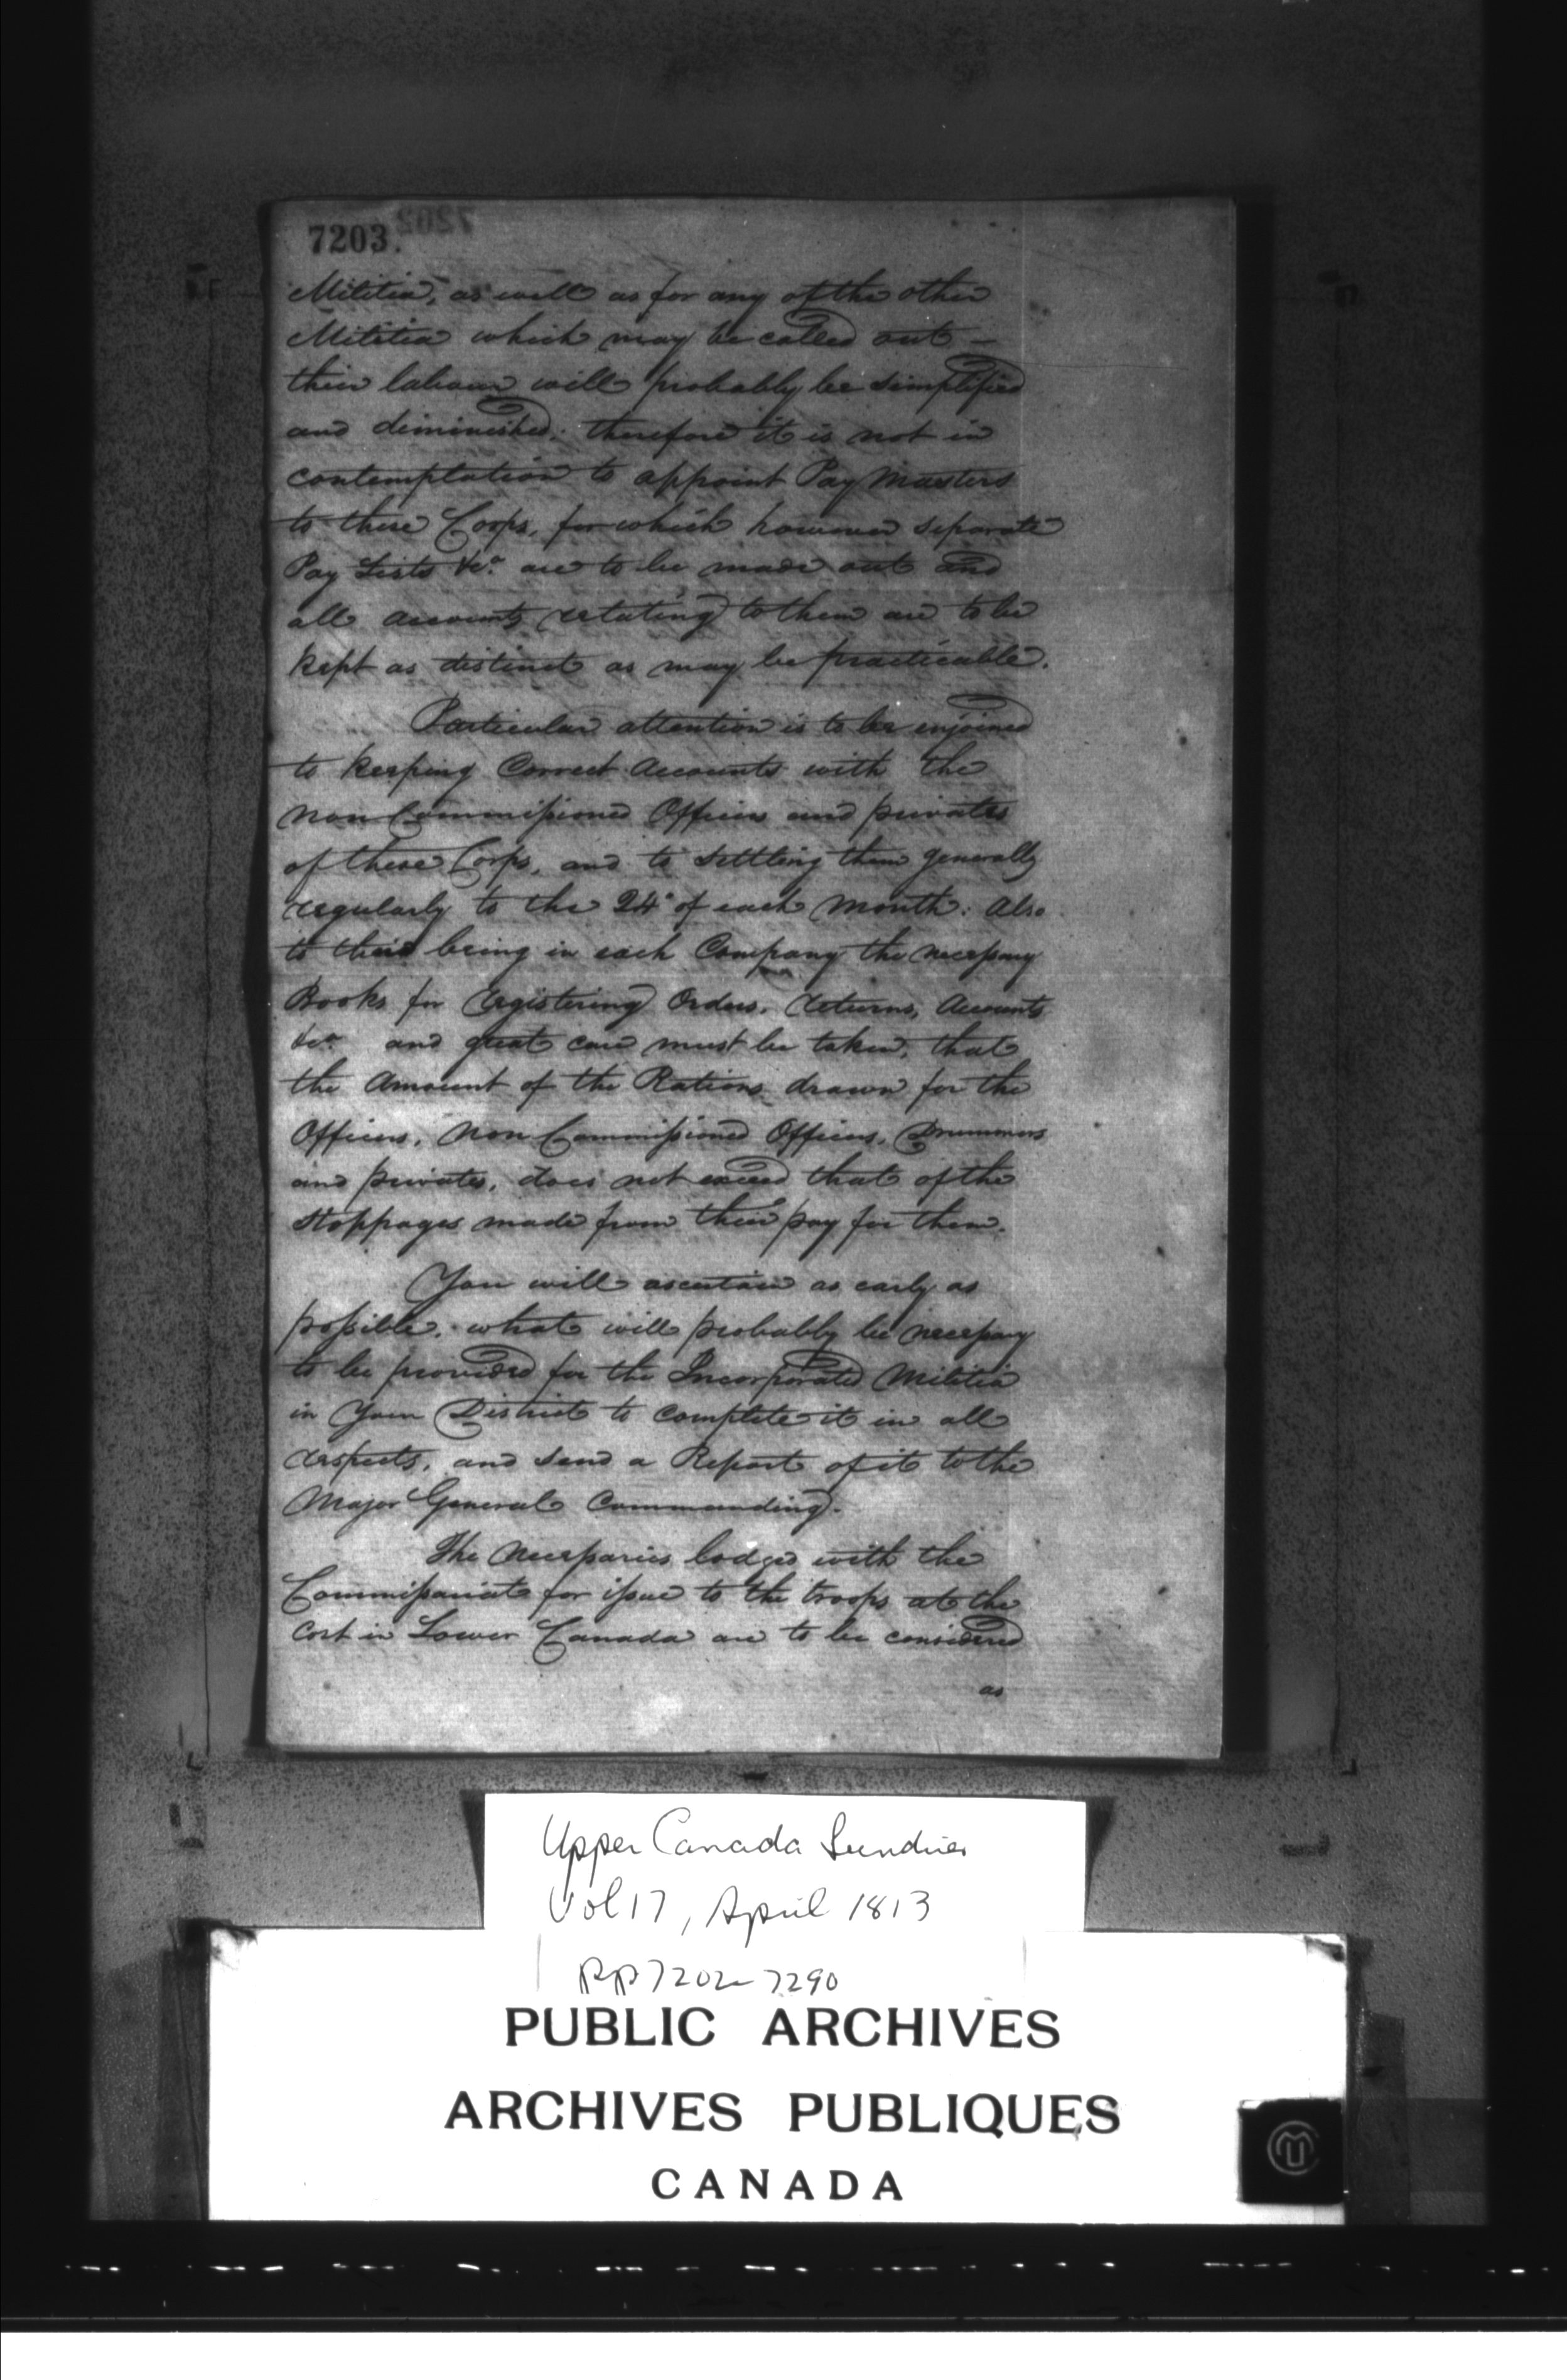 7203.
7202
Militia, as well as for any of the other
Militia which may be called out —
their labour will probably be simplified
and diminished; therefore it is not in
contemplation to appoint Pay Masters
to these Corps, for which however separate
Pay Lists &c. are to be made out and
all accounts relating to them are to be
kept as distinct as may be practicable.
Particular attention is to be enjoined
to keeping Correct Accounts with the
Non Commissioned Officers and privates
of these Corps, and to settling them generally
regularly to the 24th of each Month: Also
to their being in each Company the necessary
Books for registering Orders, returns, Accounts
&c. and great care must be taken, that
the Amount of the Rations drawn for the
Officers, Non Commissioned Officers, Drummers
and privates, does not exceed that of the
stoppages made from their pay for them.
You will ascertain as early as
possible, what will probably be necessary
to be provided for the Incorporated Militia
in Your District to complete it in all
respects, and send a Report of it to the
Major General Commanding.
The Necessaries lodged with the
Commissariat for issue to the troops at the
Cost in Lower Canada are to be considered
as
Upper Canada Sundries
Vol 17, April 1813
pp 7202-7290
PUBLIC ARCHIVES
ARCHIVES PUBLIQUES
CANADA